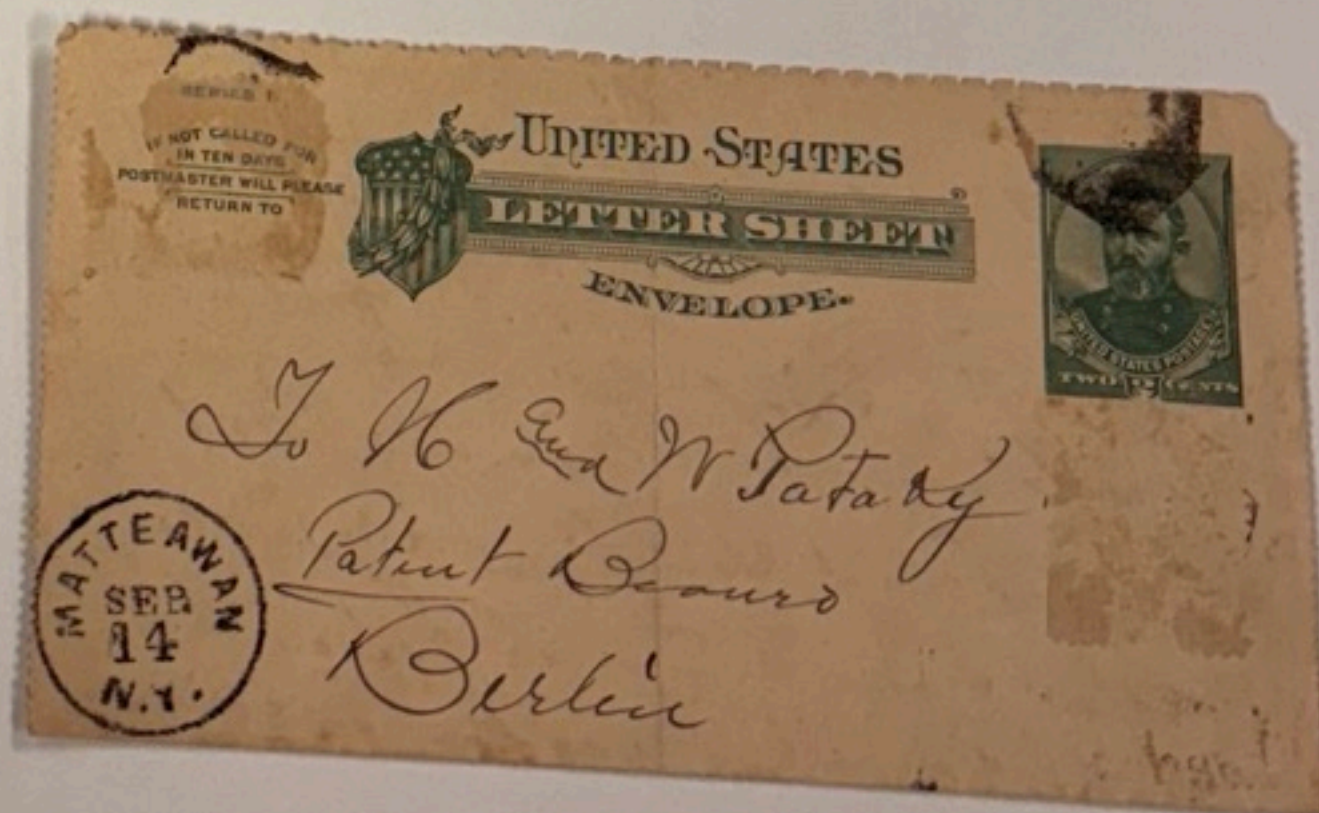 SERIES 1
IF NOT CALLED FOR
IN TEN DAYS
POSTMASTER WILL PLEASE
RETURN TO
UNITED STATES
LETTER SHEET
ENVELOPE.
UNITED STATES POSTAGE
TWO 2 CENTS
To H And W Pataky
Patent Beauro
Berlin
MATTEAWAN
SEP.
14
N.Y.